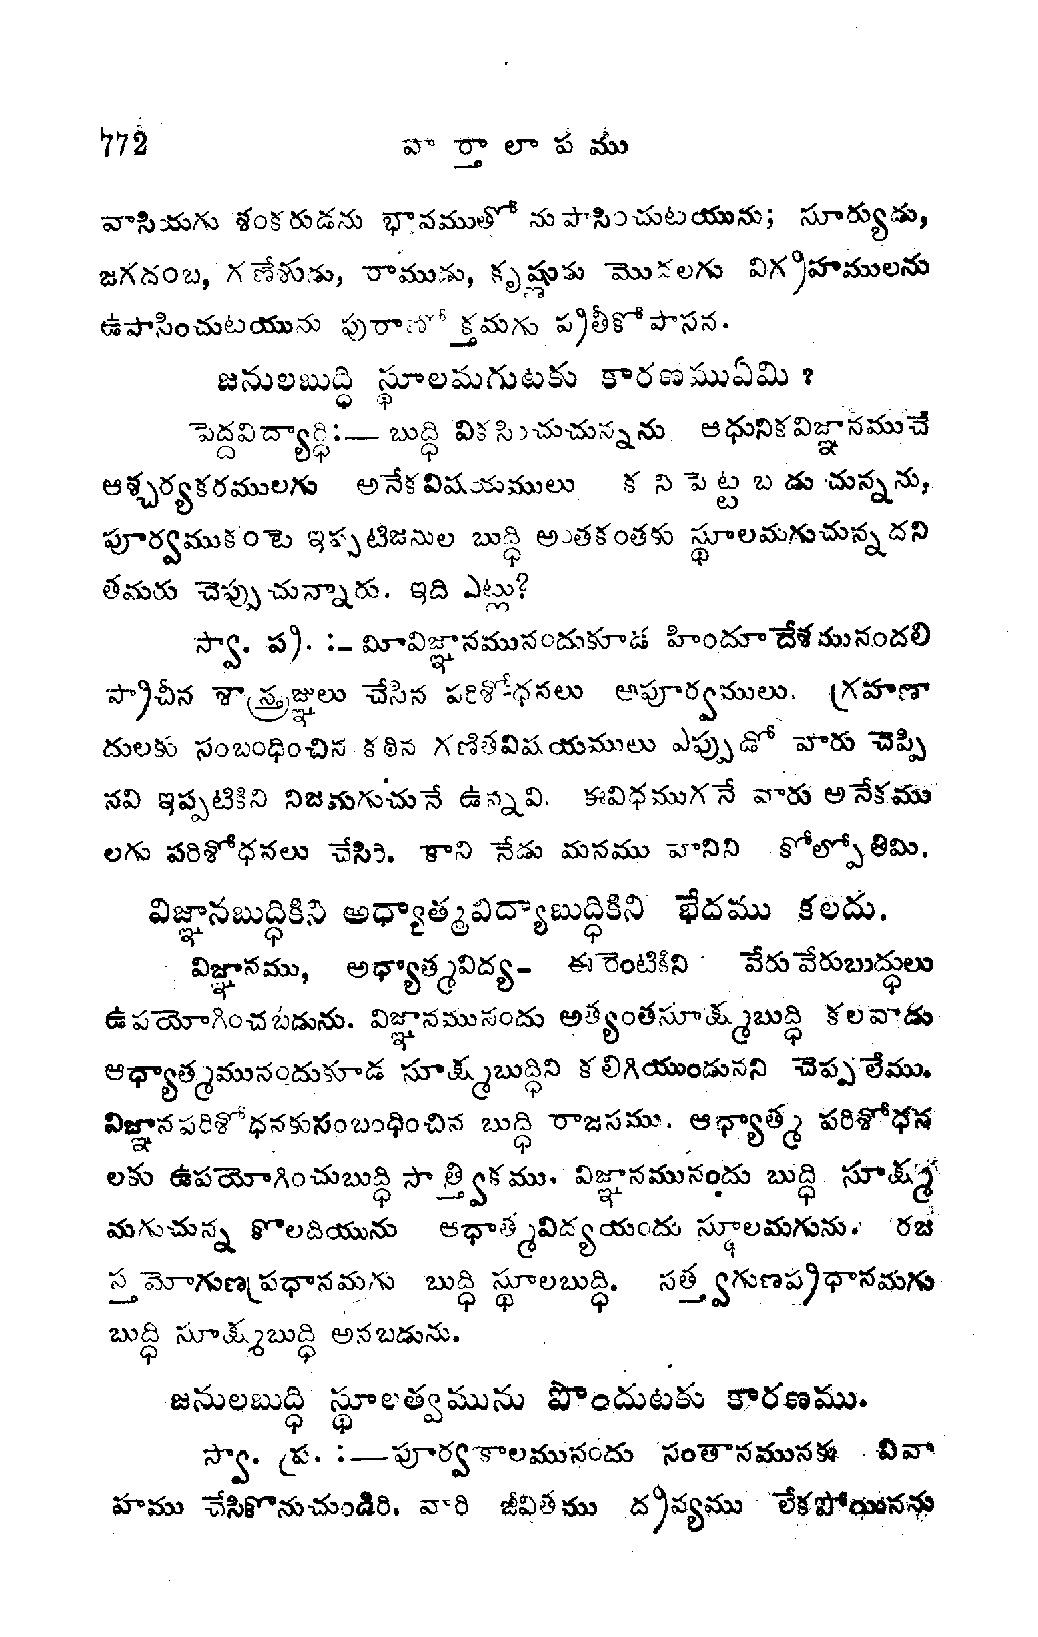 772 వార్తాలాపము
వాసియగు శంకరుడను భావముతో నుపాసించుటయును; సూర్యుడు,
జగదంబ, గణేశుడు, రాముడు, కృష్ణుడు మొదలగు విగ్రహములను
ఉపాసించుటయును పురాణోక్తమగు ప్రతీకోపాసన.
జనులబుద్ధి స్థూలమగుటకు కారణముఏమి ?
పెద్దవిద్యార్థి:— బుద్ధి వికసించుచున్నను ఆధునికవిజ్ఞానముచే
ఆశ్చర్యకరములగు అనేకవిషయములు కనిపెట్టబడుచున్నను,
పూర్వముకంటె ఇప్పటిజనుల బుద్ధి అంతకంతకు స్థూలమగుచున్నదని
తమరు చెప్పుచున్నారు. ఇది ఎట్లు?
స్వా. ప్ర. :– మీవిజ్ఞానమునందుకూడ హిందూదేశమునందలి
ప్రాచీన శాస్త్రజ్ఞులు చేసిన పరిశోధనలు అపూర్వములు. గ్రహణా
దులకు సంబంధించిన కఠిన గణితవిషయములు ఎప్పుడో వారు చెప్పి
నవి ఇప్పటికిని నిజమగుచునే ఉన్నవి. ఈవిధముగనే వారు అనేకము
లగు పరిశోధనలు చేసిరి. కాని నేడు మనము వానిని కోల్పోతిమి.
విజ్ఞానబుద్ధికిని అధ్యాత్మవిద్యాబుద్ధికిని భేదము కలదు.
విజ్ఞానము, అధ్యాత్మవిద్య– ఈరెంటికిని వేరువేరుబుద్ధులు
ఉపయోగించబడును. విజ్ఞానమునందు అత్యంతసూక్ష్మబుద్ధి కలవాడు
ఆధ్యాత్మమునందుకూడ సూక్ష్మబుద్ధిని కలిగియుండునని చెప్పలేము.
విజ్ఞానపరిశోధనకుసంబంధించిన బుద్ధి రాజసము. ఆధ్యాత్మ పరిశోధన
లకు ఉపయోగించుబుద్ధి సాత్త్వికము. విజ్ఞానమునందు బుద్ధి సూక్ష్మ
మగుచున్న కొలదియును ఆధాత్మవిద్యయందు స్థూలమగును. రజ
స్తమోగుణప్రధానమగు బుద్ధి స్థూలబుద్ధి. సత్త్వగుణప్రధానమగు
బుద్ధి సూక్ష్మబుద్ధి అనబడును.
జనులబుద్ధి స్థూలత్వమును పొందుటకు కారణము.
స్వా. ప్ర. :—పూర్వకాలమునందు సంతానమునకై వివా
హము చేసికొనుచుండిరి. వారి జీవితము ద్రవ్యము లేకపోయినను